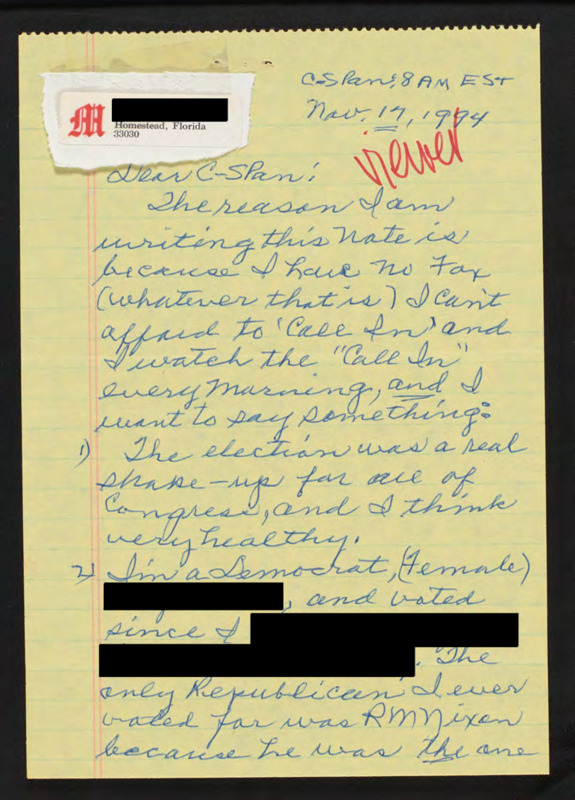 C-Span, 8 AM EST
Nov. 17, 1994
viewer
M
Homestead, Florida
33030
Dear C-Span:
The reason I am
writing this Note is
because I have no Fax
(whatever that is) I can't
afford to 'Call In' and
I watch the "Call In"
every morning, and I
want to say something:
1) The election was a real
shake-up for all of
Congress, and I think
very healthy.
2) I'm a Democrat, (Female)
, and voted
since I
. The
only Republican I ever
voted for was RM Nixon
because he was the one